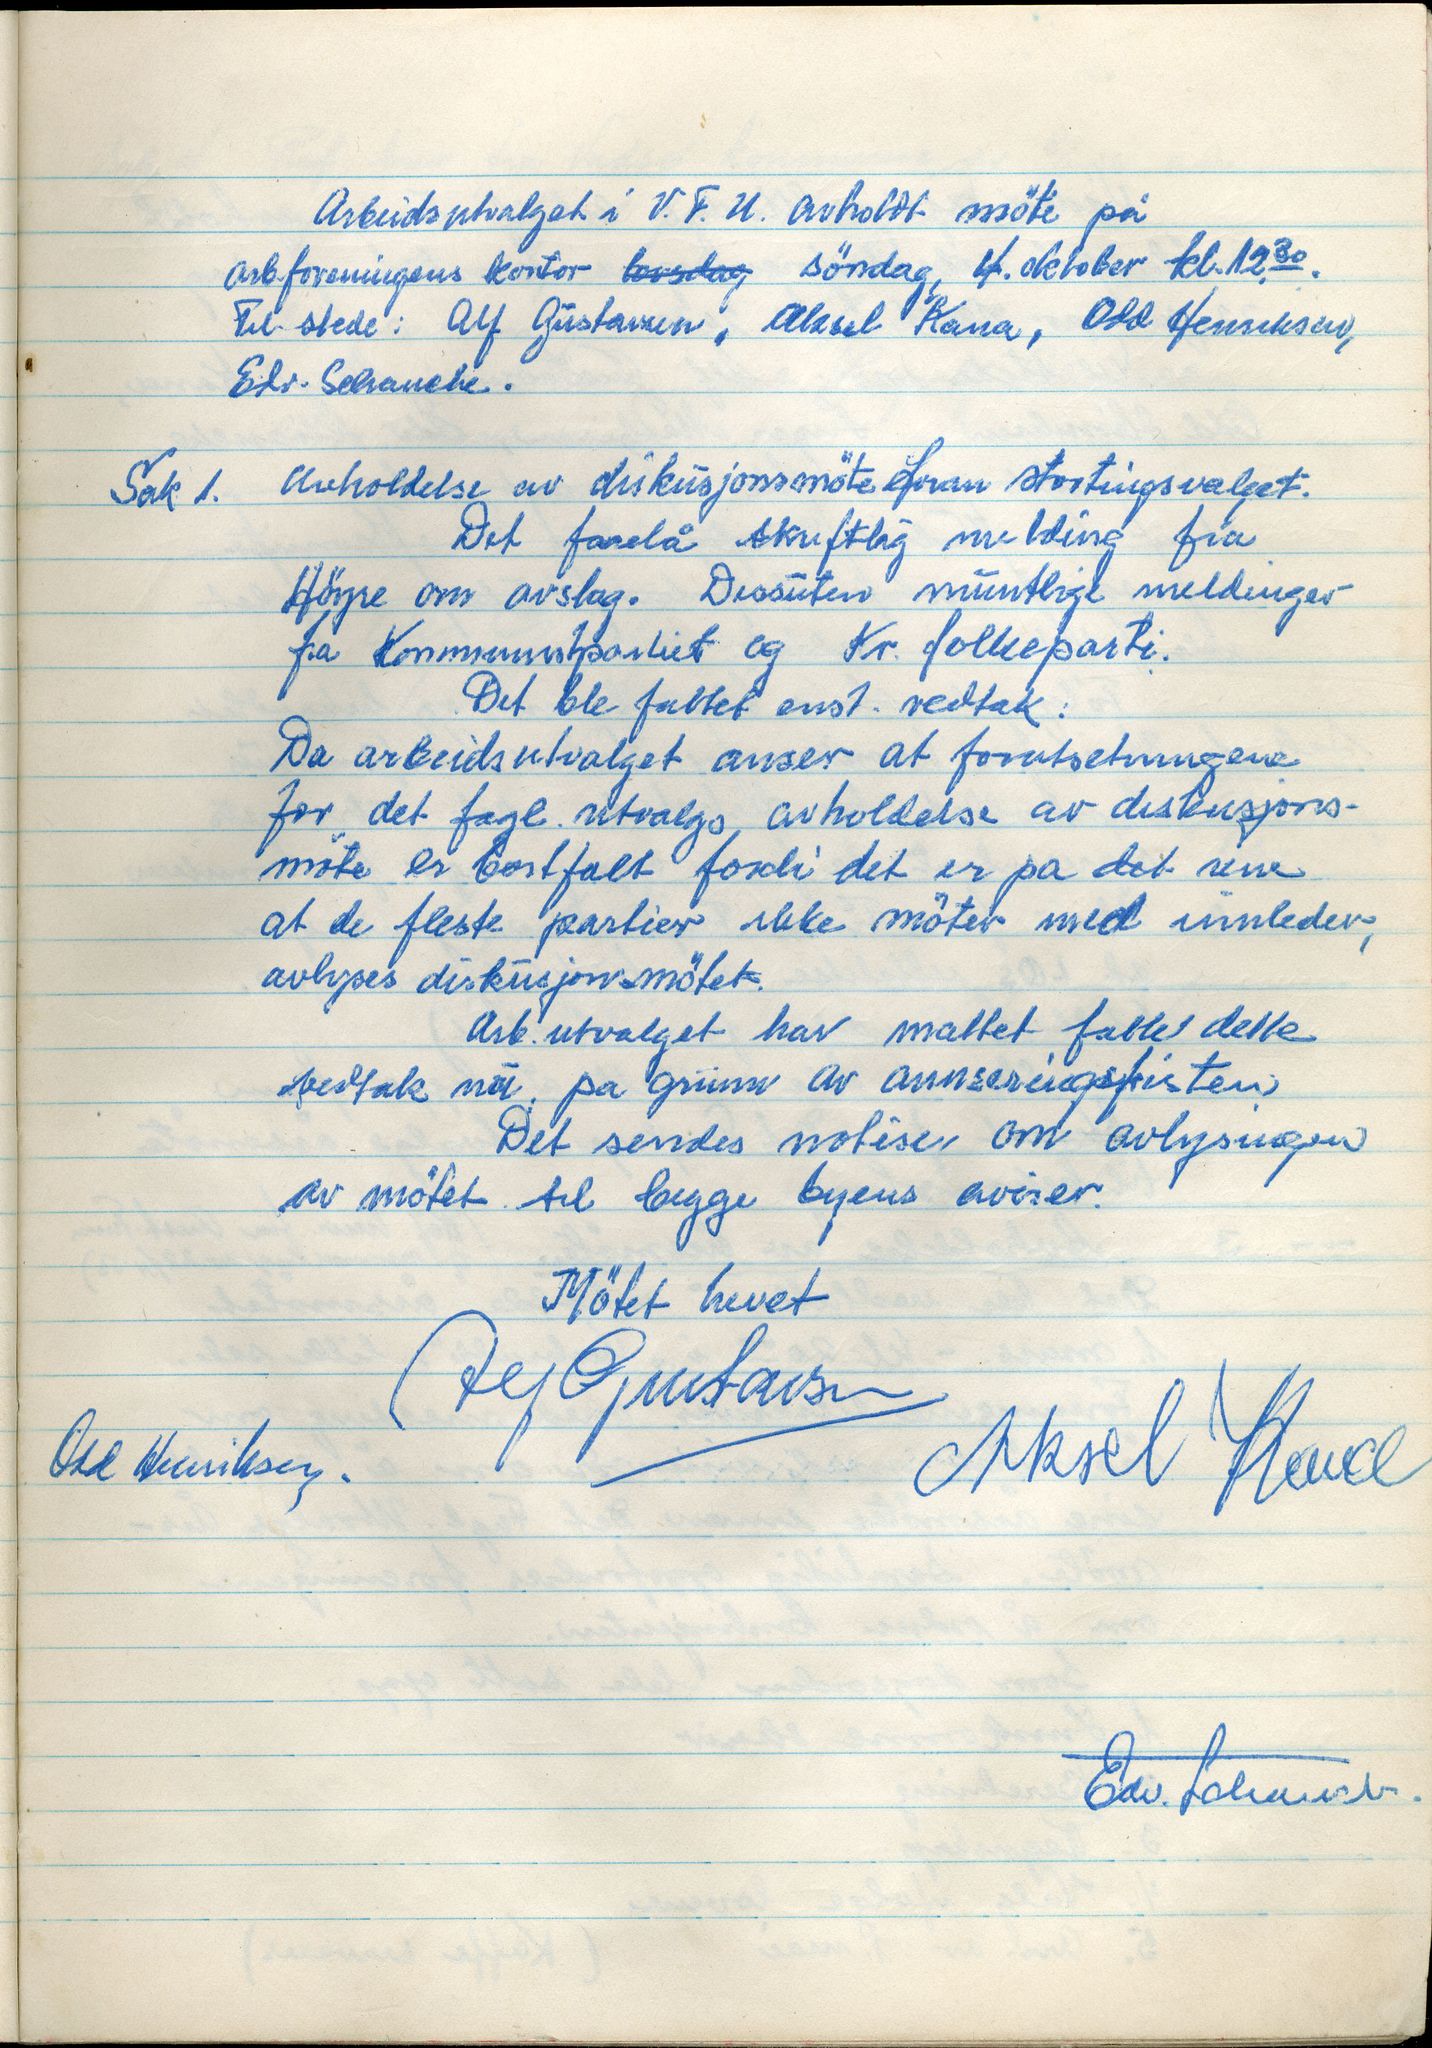 Arbeidsutvalget i V.F.U. avholdt möte på
arb.foreningens kontor torsdag söndag, 4. oktober kl. 12³⁰.
Til stede: Alf Gustavsen, Aksel Kana, Odd Henriksen,
Edv. Schanche.
Sak 1. Avholdelse av diskusjonsmöte foran stortingsvalget.
Det forelå skriftlig melding fra
Höyre om avslag. Dessuten muntlige meldinger
fra Kommunistpartiet og Kr. folkeparti.
Det ble fattet enst. vedtak:
Da arbeidsutvalget anser at forutsetningene
for det fagl. utvalgs avholdelse av diskusjons-
möte er bortfalt fordi det er på det rene
at de fleste partier ikke möter med innleder,
avlyses diskusjonsmötet.
Arb.utvalget har måttet fatte dette
vedtak nå, på grunn av annseringsfristen
Det sendes notiser om avlysingen
av mötet til begge byens aviser.
Mötet hevet
Alf Gustavsen
Odd Henriksen.
Aksel Kana
Edv. Schanche.